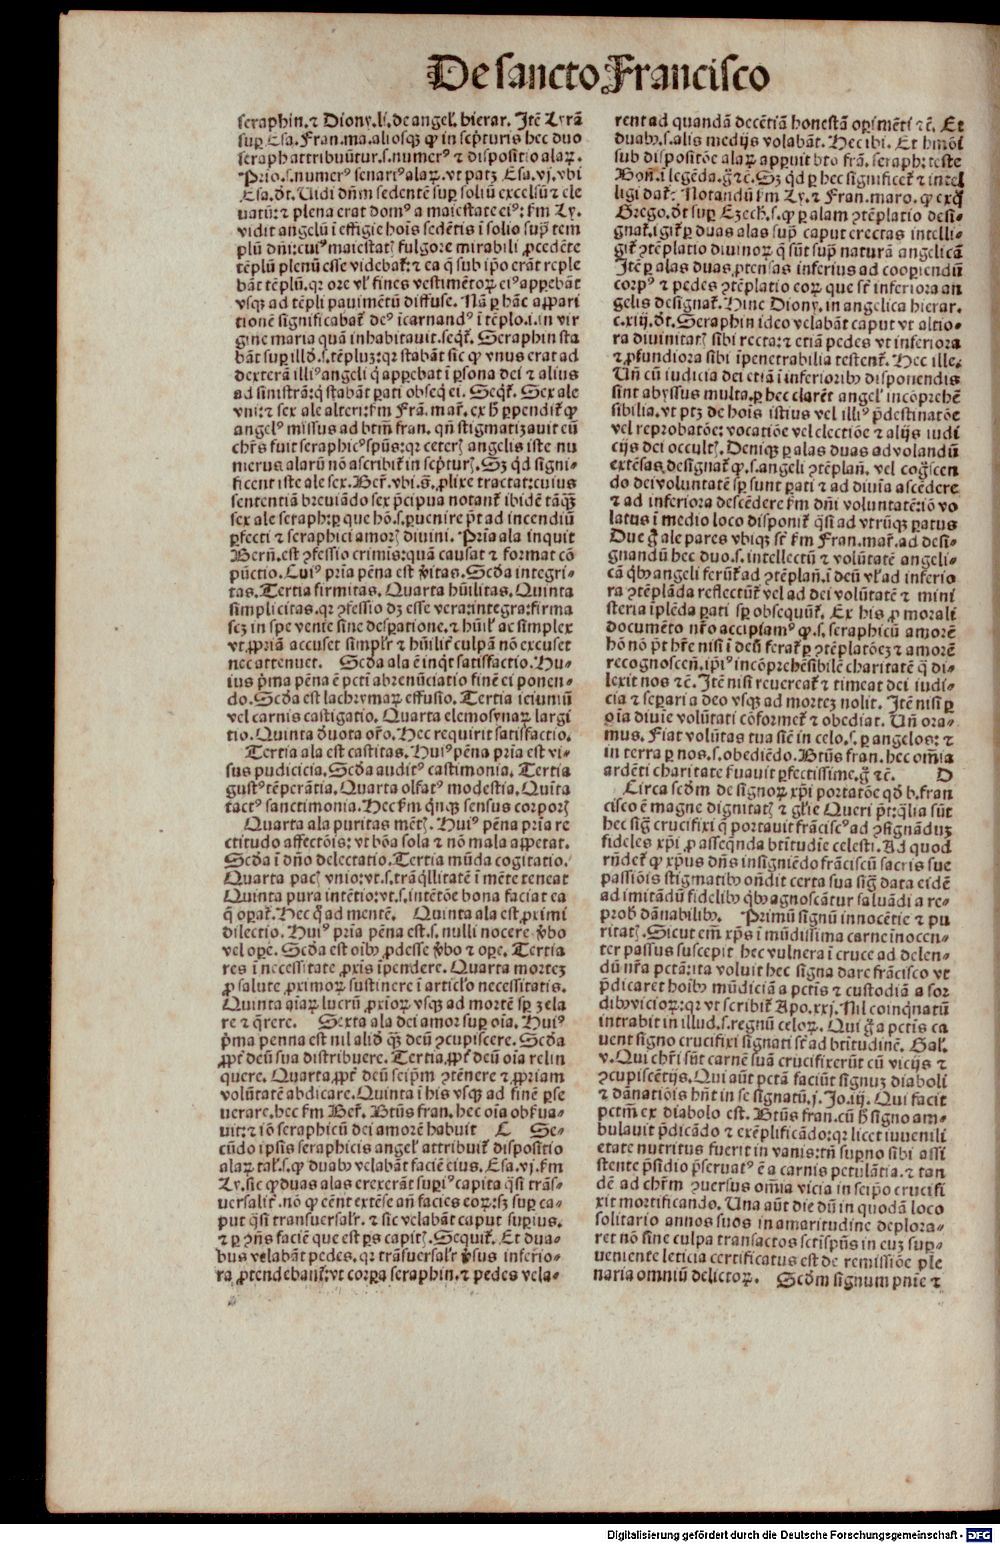 De sancto Francisco
seraphin.⁊ Diony.li.de angel̕.hierar. Itē Lyrā
sup̲ Esa. Fran.ma.aliosqꝫ ꝙ in sep̄turis hec duo
seraph attribuūtur.s.numerꝰ ⁊ dispositio alaꝝ.
Prīo.s.numerꝰ senariꝰ alaꝝ.vt patꝫ Esa.vj.vbi
Esa.dt̄. Uidi dn̄m sedentē sup̲ soliū excelsū ⁊ ele
uatū: ⁊ plena erat domꝰ a maiestate eiꝰ: ẜm Ly.
vidit angelū ī effigie hoīs sedētis ī solio sup̲ tem
plū dn̄i:cuiꝰ maiestatꝭ fulgore mirabili ꝓcedēte
tēplū plenū esse videbat̕: ⁊ ea q̄ sub ip̄o erāt reple
bāt tēplū.qr ore vl̕ fines vestimētoꝝ eiꝰ apꝑebāt
vsqꝫ ad tēpli pauimētū diffuse. Nā ꝑ hāc aꝑari
tionē significabat̕ deꝰ īcarnandꝰ ī tēplo.i.in vir
gine maria quā inhabitauit.seqt̕. Seraphin sta
bāt sup̲ illd̕.s.tēpluꝫ:qr stabāt sic ꝙ vnus erat ad
dexterā illiꝰ angeli q̄ apꝑebat ī ꝑsona dei ⁊ alius
ad sinistrā:q̄ stabāt ꝑati obseq̄ ei. Seqt̕. Sex ale
vni: ⁊ sex ale alteri:ẜm Frā. mar̕. ex h̄ ꝑpendit̕ ꝙ
angelꝰ missus ad btm̄ fran. qn̄ stigmatizauit eū
chr̄s fuit seraphicꝰ spūs:qr ceterꝭ angelis iste nu
merus alarū nō ascribit̕ in sep̄turꝭ. Sꝫ qd̕ signi-
ficent iste ale sex. Ber̕. vbi.s̄. ꝓlixe tractat:cuius
sententiā breuiādo sex p̄cipua notant̕ ibidē tāqꝫ
sex ale seraph:ꝑ que hō.s.ꝑuenire pt̄ ad incendiū
ꝑfecti ⁊ seraphici amorꝭ diuini. Prīa ala inquit
Bern̄.est ꝯfessio crimīs:quā causat ⁊ format cō
pūctio. Cuiꝰ prīa pēna est v̄itas. Scd̕a integri-
tas. Tertia firmitas. Quarta hūilitas. Quinta
simplicitas.qr ꝯfessio dꝫ esse vera:integra:firma
scꝫ in spe venie sine despatione. ⁊ hūil̕r ac simplex
vt ꝓpriā accuset simpl̕r ⁊ hūilit̕ culpā nō excuset
nec attenuet. Scd̕a ala ē inqt̕ satisfactio. Hu-
ius p̄ma pēna ē pctī abrenūciatio finē ei ponen-
do. Scd̕a est lachrymaꝝ effusio. Tertia ieiuniū
vel carnis castigatio. Quarta elemosynaꝝ largi
tio. Quinta d̄uota or̄o. Hec requirit satisfactio.
Tertia ala est castitas. Huiꝰ pēna prīa est vi-
sus pudicicia. Scd̕a auditꝰ castimonia. Tertia
gustꝰ tēperātia. Quarta olfatꝰ modestia. Quīta
tactꝰ sanctimonia. Hec ẜm qn̄qꝫ sensus corporꝭ
Quarta ala puritas mētꝭ. Huiꝰ pēna prīa re
ctitudo affectōis: vt bōa sola ⁊ nō mala aꝑetat.
Scd̕a ī dn̄o delectatio. Tertia mūda cogitatio.
Quarta pacꝭ vnio:vt.s.trāqllitatē ī mēte teneat
Quinta pura intētio:vt.s.intētōe bona faciat ea
q̄ oꝑat̕. Hec qͣd̕ ad mentē. Quinta ala est ꝓximi
dilectio. Huiꝰ prīa pēna est.s.nulli nocere v̄bo
vel oꝑe. Scd̕a est oībꝫ ꝓdesse v̄bo ⁊ oꝑe. Tertia
res ī necessitate ꝓxīs īpendere. Quarta morteꝫ
ꝓ salute ꝓximoꝝ sustinere ī articl̕o necessitatis.
Quinta aīaꝝ lucrū ꝓxioꝝ vsqꝫ ad mortē sꝑ ꝫela
re ⁊ q̄rere. Sexta ala dei amor sup̲ oīa. Huiꝰ
p̄ma penna est nil alid̕ qꝫ deū ꝯcupiscere. Scd̕a
ꝓpt̕ deū sua distribuere. Tertia.ꝓpt̕ deū oīa relin
quere. Quarta.ꝓpt̕ deū seip̄m ꝯtēnere ⁊ ꝓpriam
volūtatē abdicare. Quinta ī his vsqꝫ ad finē ꝑse
uerare.hec ẜm Ber̕. Btūs fran. hec oīa obẜua-
uit: ⁊ iō seraphicū dei amorē habuit C Se-
cūdo ipsis seraphicis angel̕ attribuit̕ dispositio
alaꝝ tal̕.s.ꝙ duabꝫ velabāt faciē eius. Esa.vj.ẜm
Ly.sic ꝙ duas alas erexerāt supiꝰ capita q̄si trās-
uersalit̕. nō ꝙ cēnt extēse an̄ facies eoꝝ:sꝫ sup̲ ca-
put q̄si transuersal̕r. ⁊ sic velabāt caput supius.
⁊ ꝑ ꝯn̄s faciē que est ꝑs capitꝭ. Sequit̕. Et dua-
bus velabāt pedes. qr trāsuersal̕r v̄sus inferio-
ra ꝓtendebant̕:vt corꝑa seraphin. ⁊ pedes vela-
rent ad quandā decētiā honestā opīmēti ⁊c̄. Et
duabꝫ.s.alis medijs volabāt. Hec ibi. Et hmōi
sub dispositōe alaꝝ apꝑuit bto frā. seraph: teste
Bon̄.ī legēda.g̊ ⁊c̄. Sꝫ qd̕ ꝑ hec significet̕ ⁊ intel
ligi dat̕: Notandū ẜm Ly. ⁊ Fran.maro. ꝙ exq̊
Grego. dt̄ sup̲ Ezech̕.s.ꝙ ꝑ alam ꝯtēplatio desi-
gnat̕.igit̕ ꝑ duas alas sup̲ caput erectas intelli-
git̕ ꝯtēplatio diuinoꝝ q̄ sūt sup̲ naturā angelicā
Itē ꝑ alas duas ꝓtensas inferius ad cooꝑiendū
corpꝰ ⁊ pedes ꝯtēplatio eoꝝ que st̄ inferiora an
gelis designat̕. Hinc Diony.in angelica hierar.
c.xiij.dt̄. Seraphin ideo velabāt caput vt altio-
ra diuinitatꝭ sibi recta: ⁊ etiā pedes vt inferiora
⁊ ꝓfundiora sibi īpenetrabilia testent̕. Hec ille.
Un̄ cū iudicia dei etiā ī inferioribꝫ disponendis
sint abyssus multa.ꝑ hec clarēt angel̕ incōprehē
sibilia. vt ptꝫ de hoīs istius vel illiꝰ p̄destinatōe
vel reprobatōe: vocatiōe vel electiōe ⁊ alijs iudi
cijs dei occultꝭ. Deniqꝫ ꝑ alas duas ad volandū
extēsas designat̕ ꝙ.s.angeli ꝯtēplan̄. vel cog̊scen
do dei voluntatē sꝑ sunt ꝑati ⁊ ad diuīa ascēdere
⁊ ad inferiora descēdere ẜm dn̄i voluntatē:iō vo
latus ī medio loco disponit̕ q̄si ad vtrūqꝫ ꝑatus
Due g̊ ale pares vbiqꝫ st̄ ẜm Fran.mar̕.ad desi-
gnandū hec duo.s.intellectū ⁊ volūtatē angeli-
cā qͥbꝫ angeli ferūt̕ ad ꝯtēplan̄.ī deū vl̕ ad inferio
ra ꝯtēplāda reflectūt̕ vel ad dei volūtatē ⁊ mini
steria īplēda ꝑati sꝑ obsequūt̕. Ex his ꝓ morali
documēto nr̄o accipiamꝰ ꝙ.s.seraphicū amorē
hō nō pt̄ hr̄e nisi ī deū ferat̕ ꝑ ꝯtēplatōeꝫ ⁊ amorē
recognoscen̄.ip̄iꝰ incōprehēsibilē charitatē q̄ di-
lexit nos ⁊c̄. Itē nisi reuereat̕ ⁊ timeat dei iudi-
cia ⁊ separi a deo vsqꝫ ad morteꝫ nolit. Itē nisi ꝑ
ꝑ īa diuīe volūtati cōformet̕ ⁊ obediat. Un̄ ora-
mus. Fiat volūtas tua sicē in celo.s.ꝑ angelos: ⁊
in terra ꝑ nos.s.obediēdo. Btūs fran.hec om̄ia
ardēti charitate ẜuauit ꝑfectissime.g̊ ⁊c̄. D
Circa scd̕m de signoꝝ xp̄i portatōe qd̕ b.fran
cisco ē magne dignitatꝭ ⁊ gl̕ie Queri pt̄:q̄lia sūt
hec sig̊ crucifixi q̄ portauit frāciscꝰ ad ꝯsignāduꝫ
fideles xp̄i ꝓ asseqn̄da btītudīe celesti. Ad quod
rn̄det̕ ꝙ xp̄us dn̄s insigniēdo frāciscū sacris sue
passiōis stigmatibꝫ on̄dit certa sua sig̊ data eidē
ad imitādū fidelibꝫ qͥbꝫ agnoscātur saluādi a re-
probꝭ dānabilibꝫ. Primū signū innocētie ⁊ pu
ritatꝭ. Sicut em̄ xp̄s ī mūdissima carne īnocen-
ter passus suscepit hec vulnera ī cruce ad delen-
dū nr̄a pctā:ita voluit hec signa dare frācisco vt
p̄dicaret hoībꝫ mūdiciā a pctīs ⁊ custodiā a sor
dibꝫ vicioꝝ:qr vt scribit̕ Apo.xxj. Nil coinqͥnatū
intrabit in illud.s.regnū celoꝝ. Qui g̊a pctīs ca
uent signo crucifixi signati st̄ ad btītudinē. Gal̕.
v. Qui chr̄i sūt carnē suā crucifixerūt cū vicijs ⁊
ꝯcupiscētijs. Qui aūt pctā faciūt signuꝫ diaboli
⁊ dānatiōis hn̄t in se signatū.j. Jo.iij. Qui facit
pctm̄ ex diabolo est. Btūs fran.cū h̄ signo am-
bulauit p̄dicādo ⁊ exēplificādo:qr licet iuuenili
etate nutritus fuerit in vanis:tn̄ supno sibi assi
stente p̄sidio p̄seruatꝰ ē a carnis petulātia. ⁊ tan
dē ad chr̄m ꝯuersus om̄ia vicia in seip̄o crucifi
xit mortificando. Una aūt die dū in quodā loco
solitario annos suos in amaritudine deplora-
ret nō sine culpa transactos sctīspūs in euꝫ sup-
ueniente leticia certificatus est de remissiōe ple
naria omniū delictoꝝ. Scd̕m signum pnīe ⁊
Digitalisierung gefördert durch die Deutsche Forschungsgemeinschaft - DFG